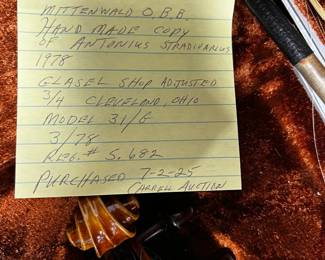 MITTENWALD O.B.B.
HAND MADE COPY
OF ANTONIUS STRADIVARIUS
1978
GLASEL SHOP ADJUSTED
3/4 CLEVELAND, OHIO
MODEL 31/G
3/78
REG. # S. 682
PURCHASED 7-2-25
CARRELL AUCTION